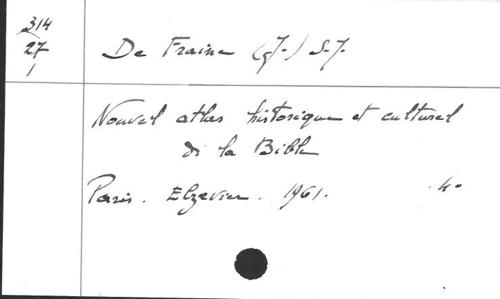 314
27
1
De Fraine (J.) S.J.
Nouvel atlas historique et culturel
de la Bible
Paris. Elzevier. 1961. 4°